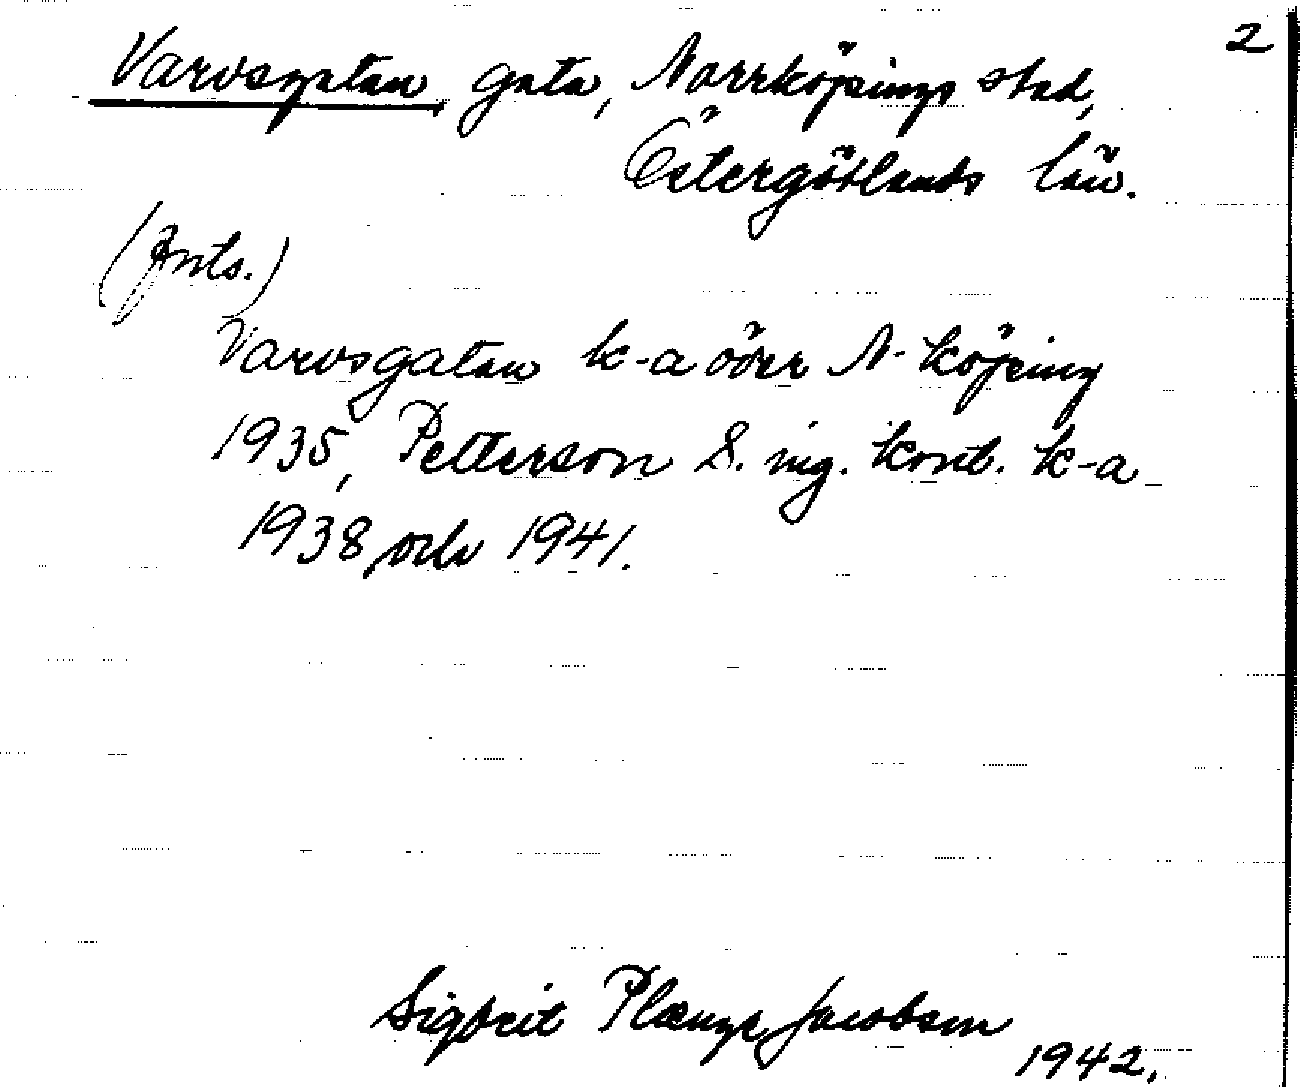 2
Varvsgatan, gata, Norrköpings stad,
Östergötlands län.
(Ants.)
Varvsgatan k-a över N-köping
1935, Petterson S. ing. kont. k-a
1938 och 1941.
Sigfrit Plænge Jacobson
1942.